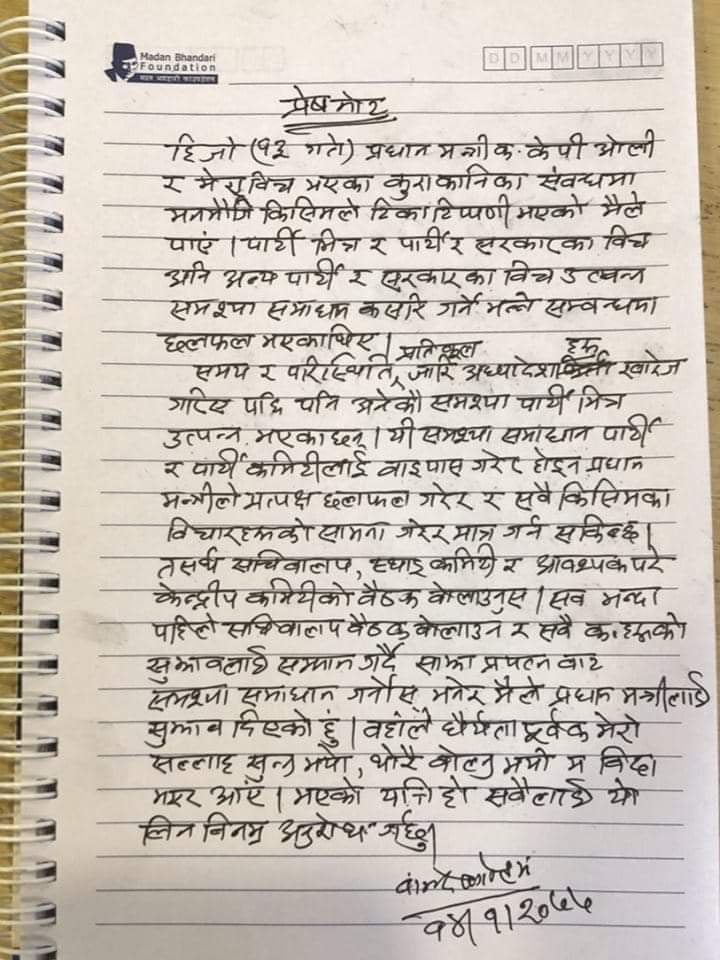 Madan Bhandari
Foundation
मदन भण्डारी फाउण्डेसन
D D M M Y Y Y Y
प्रेष नोट
हिजो (१३ गते) प्रधान मन्त्री क. केपी ओली
र मेरा विच भएका कुराकानिका संवन्धमा
मनमौजि किसिमले टिका टिप्पणी भएको मैले
पाएं । पार्टी भित्र र पार्टी र सरकारका विच
अनि अन्य पार्टी र सरकारका विच उत्पन्न
समश्या समाधान कसरि गर्ने भन्ने सम्वन्धमा
छलफल भएकाथिए ।
समय र परिस्थिति प्रतिकूल जारि अध्यादेश हरू खारेज
गरिए पछि पनि अनेकौ समश्या पार्टी भित्र
उत्पन्न भएका छन् । यी समश्या समाधान पार्टी
र पार्टी कमिटीलाई वाइपास गरेर होइन प्रधान
मन्त्रीले प्रत्यक्ष छलफल गरेर र सवै किसिमका
विचारहरूको सामना गरेर मात्र गर्न सकिन्छ ।
तसर्थ सचिवालय, स्थाइ कमिटी र आवश्यक परे
केन्द्रीय कमिटीको वैठक वोलाउनुस । सव भन्दा
पहिले सचिवालय वैठक वोलाउन र सवै क. हरूको
सुझावलाई सम्मान गर्दै साझा प्रयत्न वाट
समश्या समाधान गर्नोस् भनेर मैले प्रधान मन्त्रीलाई
सुझाव दिएको हुं । वहांले धैर्यता पूर्वक मेरो
सल्लाह सुन्नु भयो, थोरै वोल्नु भयो म विदा
भएर आंए । भएको यत्ति हो सवैलाई यो
लिन विनम्र अनुरोध गर्छु ।
वामदेव गौतम
१४/१/२०७७